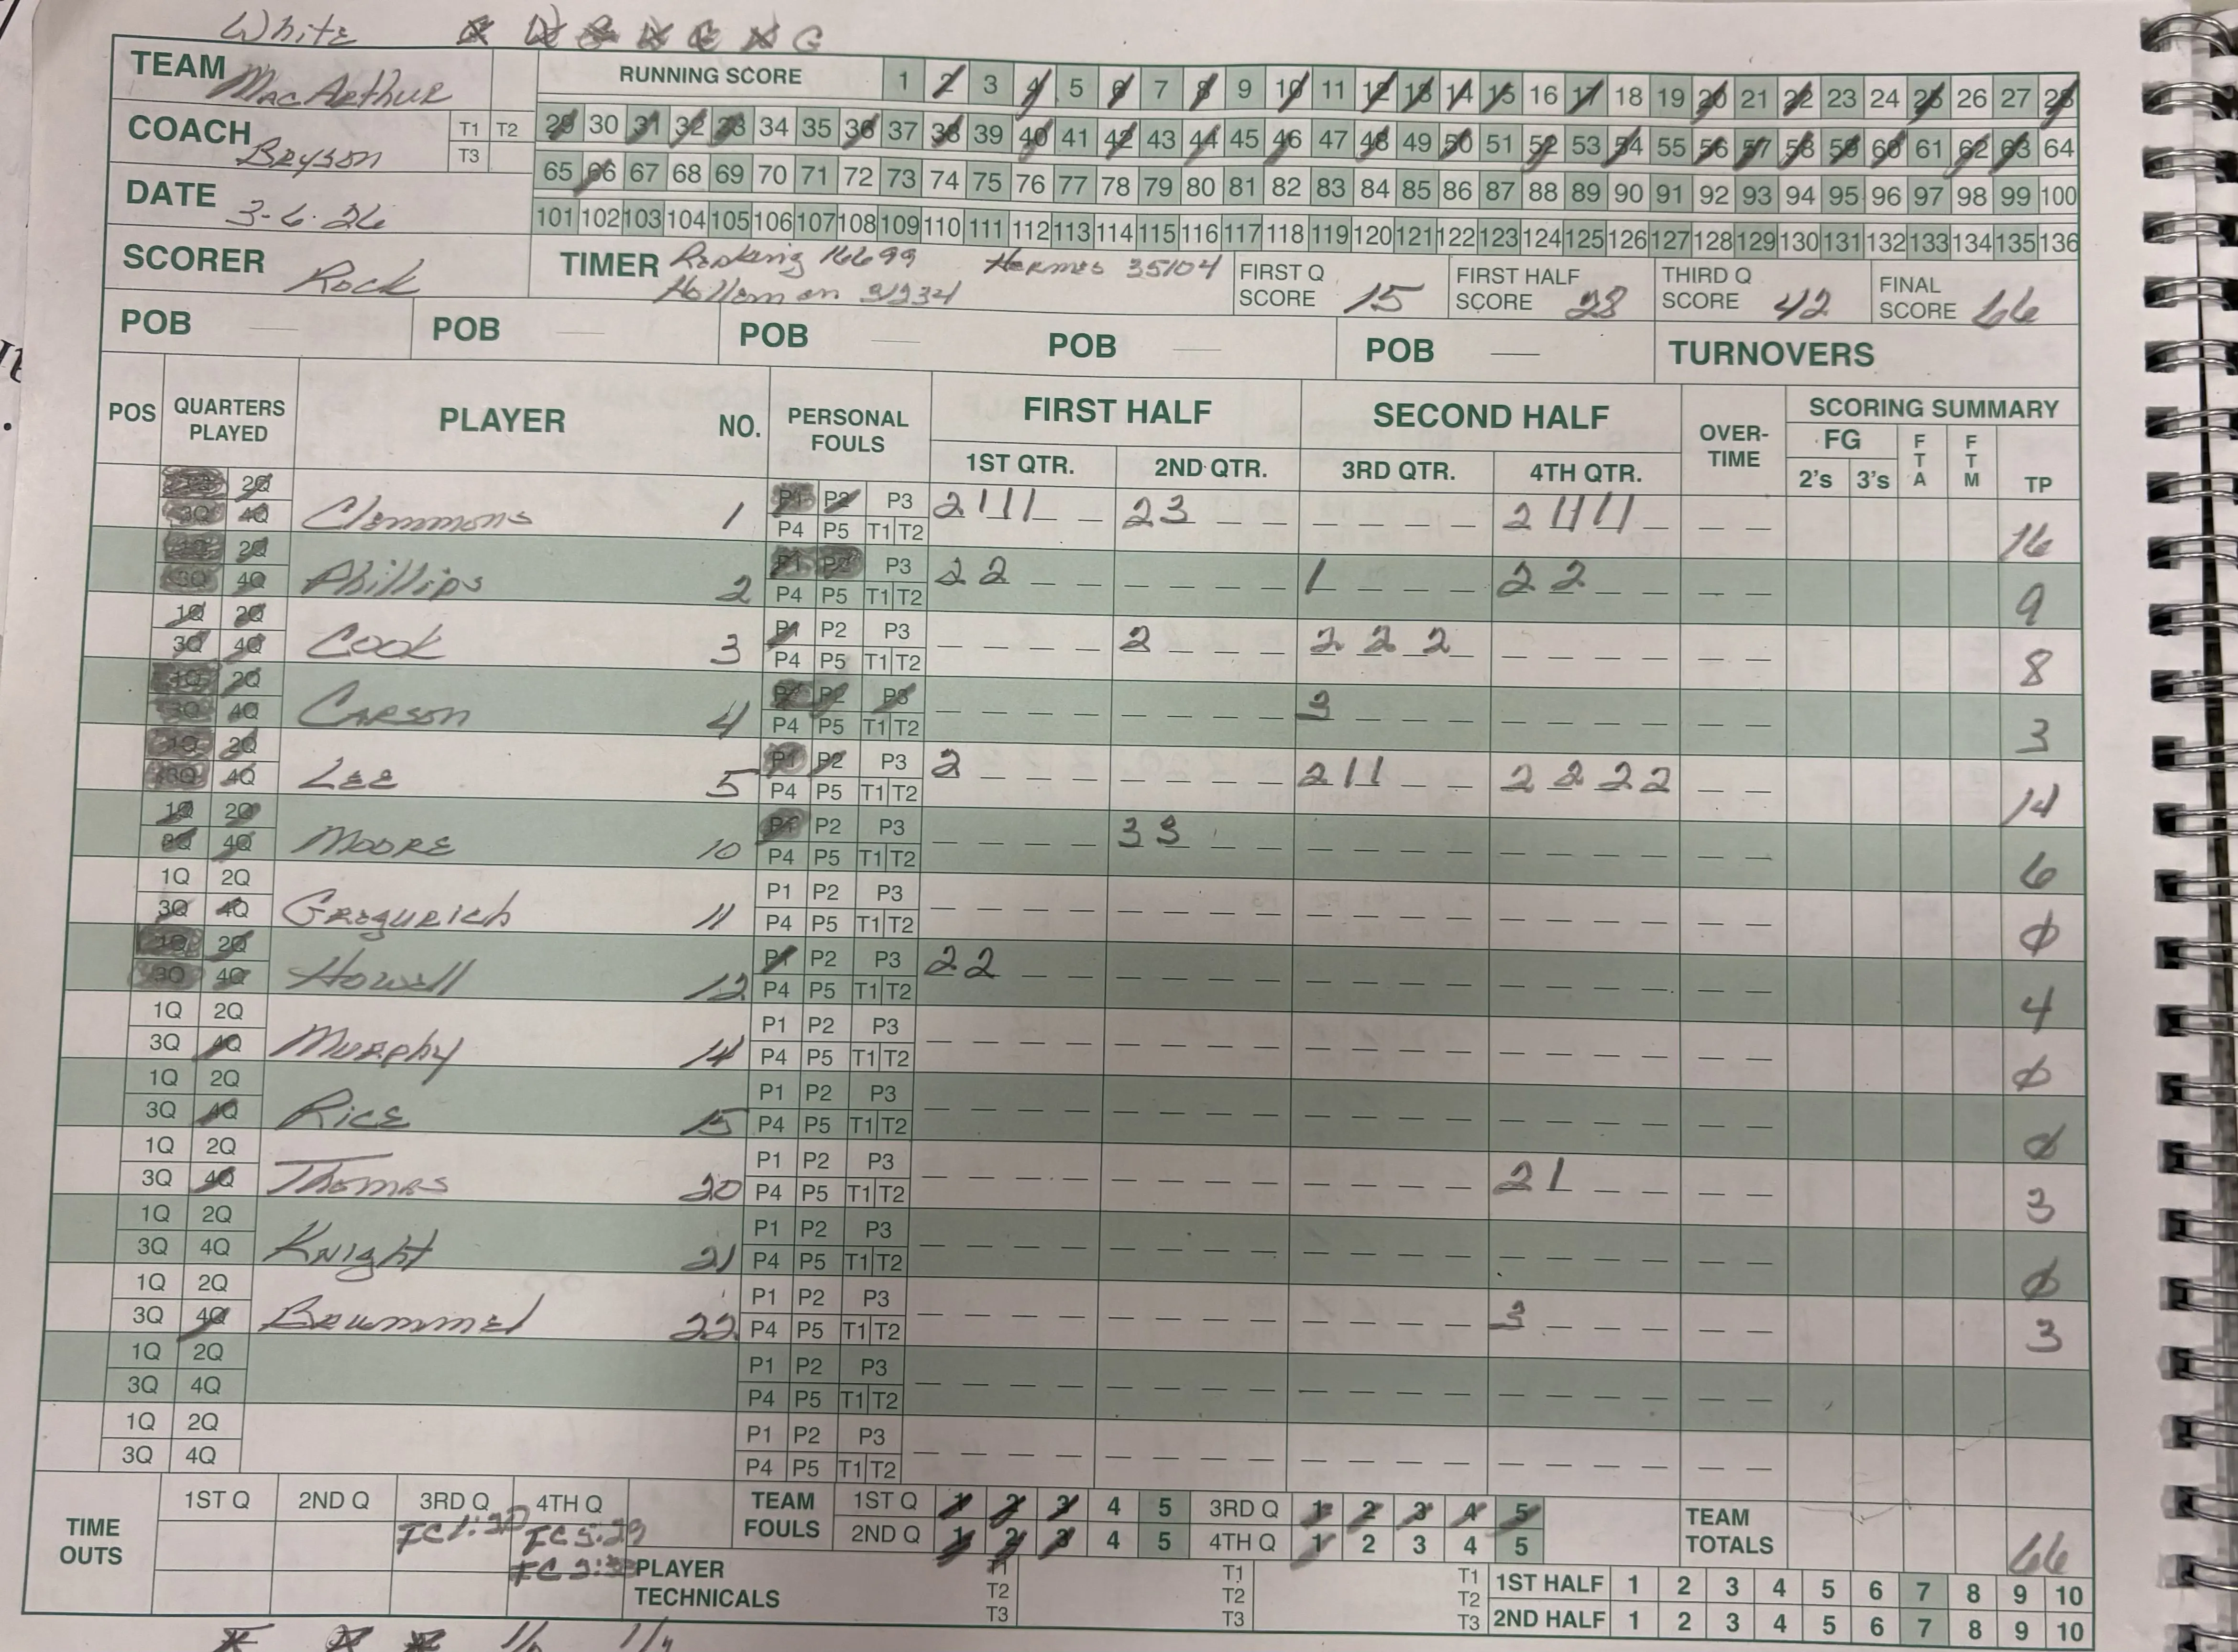 White
TEAM MacArthur
COACH Bryson T1 T2 T3
DATE 3-6-26
SCORER Rock
RUNNING SCORE 1 2 3 4 5 6 7 8 9 10 11 12 13 14 15 16 17 18 19 20 21 22 23 24 25 26 27 28
29 30 31 32 33 34 35 36 37 38 39 40 41 42 43 44 45 46 47 48 49 50 51 52 53 54 55 56 57 58 59 60 61 62 63 64
65 66 67 68 69 70 71 72 73 74 75 76 77 78 79 80 81 82 83 84 85 86 87 88 89 90 91 92 93 94 95 96 97 98 99 100
101 102 103 104 105 106 107 108 109 110 111 112 113 114 115 116 117 118 119 120 121 122 123 124 125 126 127 128 129 130 131 132 133 134 135 136
TIMER 16699 Hermes 35104
Holleman 31234
FIRST Q SCORE 15
FIRST HALF SCORE 28
THIRD Q SCORE 42
FINAL SCORE 66
POB — POB — POB — POB — POB — TURNOVERS
POS QUARTERS PLAYED PLAYER NO. PERSONAL FOULS FIRST HALF SECOND HALF OVER-TIME SCORING SUMMARY
1ST QTR. 2ND QTR. 3RD QTR. 4TH QTR. FG 2's 3's FTA FTM TP
1Q 2Q P1 P2 P3
3Q 4Q Clemmons 1 P4 P5 T1 T2 2 1 1 1 2 3 2 1 1 1 1 16
1Q 2Q P1 P2 P3
3Q 4Q Phillips 2 P4 P5 T1 T2 2 2 1 2 2 9
1Q 2Q P1 P2 P3
3Q 4Q Cook 3 P4 P5 T1 T2 2 2 2 2 8
1Q 2Q P1 P2 P3
3Q 4Q Carson 4 P4 P5 T1 T2 3 3
1Q 2Q P1 P2 P3
3Q 4Q Lee 5 P4 P5 T1 T2 2 2 1 1 2 2 2 2 14
1Q 2Q P1 P2 P3
3Q 4Q Moore 10 P4 P5 T1 T2 3 3 6
1Q 2Q P1 P2 P3
3Q 4Q Gregurich 11 P4 P5 T1 T2 0
1Q 2Q P1 P2 P3
3Q 4Q Howell 12 P4 P5 T1 T2 2 2 4
1Q 2Q P1 P2 P3
3Q 4Q Murphy 14 P4 P5 T1 T2 0
1Q 2Q P1 P2 P3
3Q 4Q Rice 15 P4 P5 T1 T2 0
1Q 2Q P1 P2 P3
3Q 4Q Thomas 20 P4 P5 T1 T2 2 1 3
1Q 2Q P1 P2 P3
3Q 4Q Knight 21 P4 P5 T1 T2 0
1Q 2Q P1 P2 P3
3Q 4Q Brummel 22 P4 P5 T1 T2 3 3
1Q 2Q P1 P2 P3
3Q 4Q P4 P5 T1 T2
1Q 2Q P1 P2 P3
3Q 4Q P4 P5 T1 T2
TIME OUTS 1ST Q 2ND Q 3RD Q 4TH Q
TEAM FOULS 1ST Q 1 2 3 4 5 3RD Q 1 2 3 4 5
2ND Q 1 2 3 4 5 4TH Q 1 2 3 4 5
TEAM TOTALS 66
PLAYER TECHNICALS T1 T2 T3 T1 T2 T3 T1 T2 T3
1ST HALF 1 2 3 4 5 6 7 8 9 10
2ND HALF 1 2 3 4 5 6 7 8 9 10